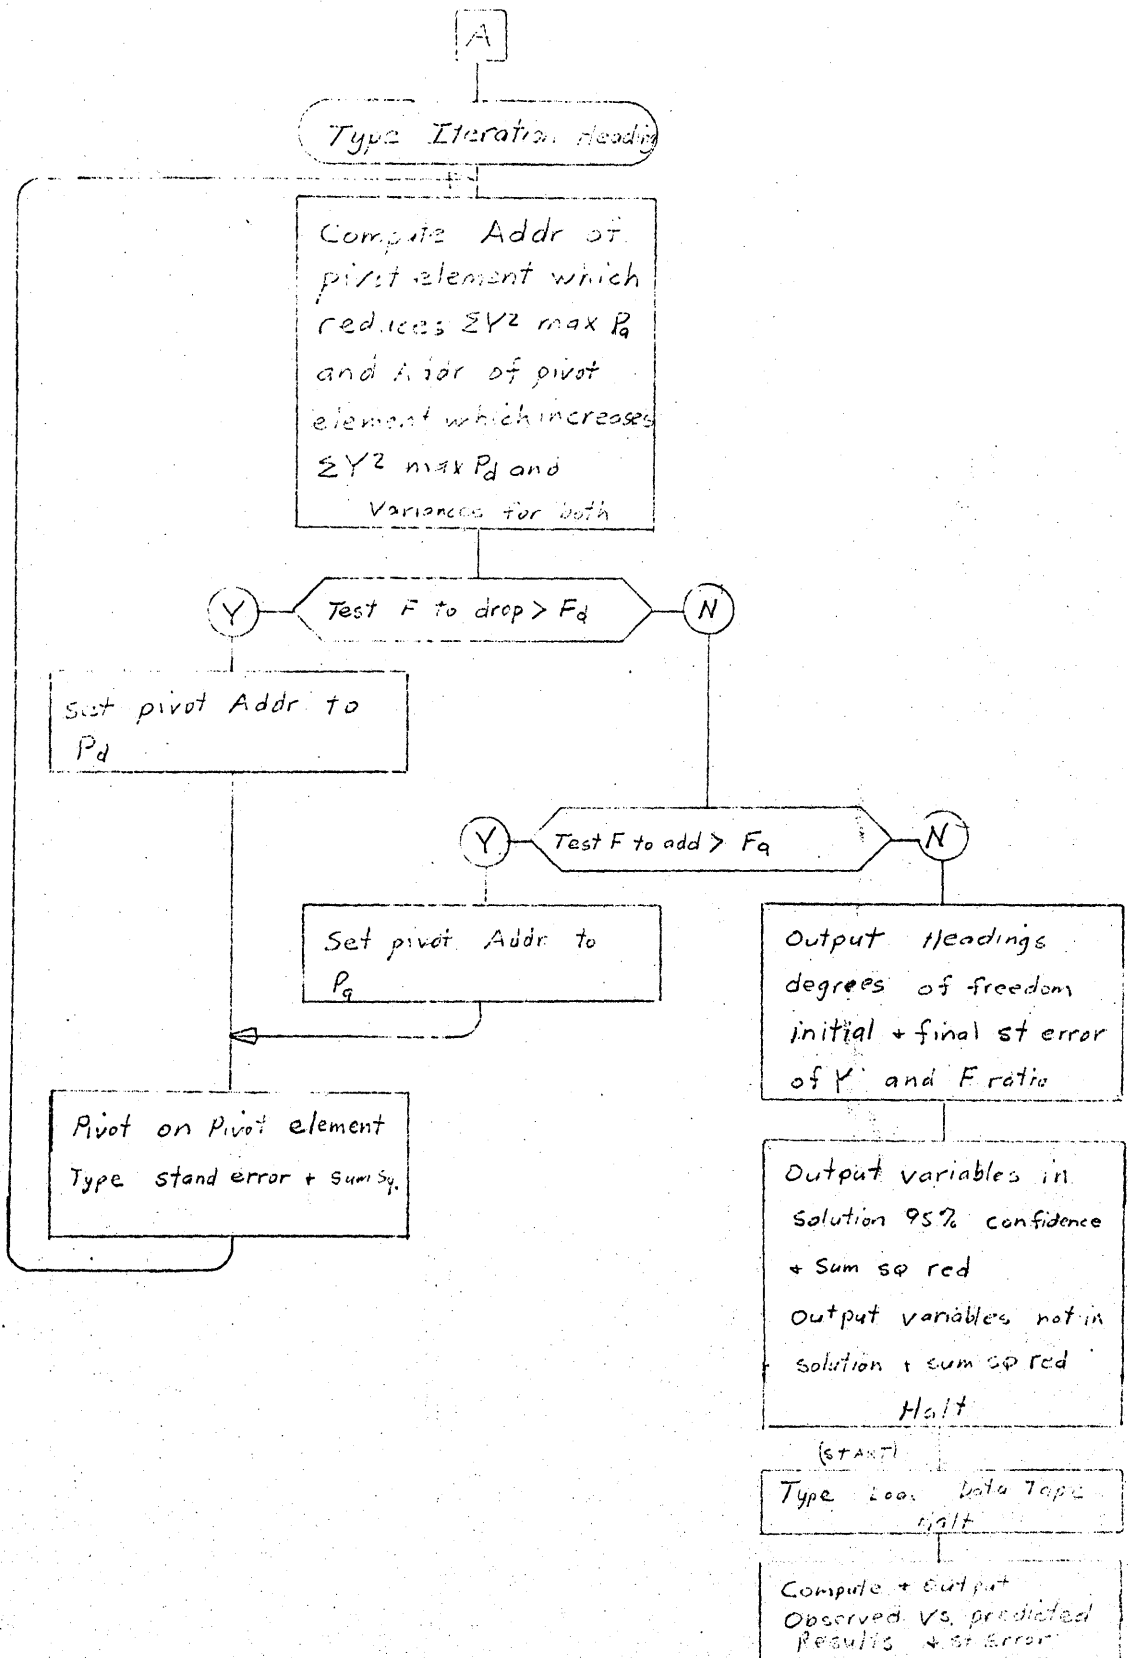 A
Type Iteration Heading
Compute Addr of
pivot element which
reduces ΣY² max Pa
and Addr of pivot
element which increases
ΣY² max Pd and
Variances for both
Y
Test F to drop > Fd
N
Set pivot Addr. to
Pd
Y
Test F to add > Fa
N
Set pivot Addr. to
Pa
Output Headings
degrees of freedom
initial + final st error
of Y and F ratio
Pivot on Pivot element
Type stand error + sum sq.
Output variables in
Solution 95% confidence
+ Sum sq red
Output variables not in
solution + sum sq red
Halt
(START)
Type Load Data Tape
Halt
Compute + Output
Observed Vs. predicted
Results + St Error